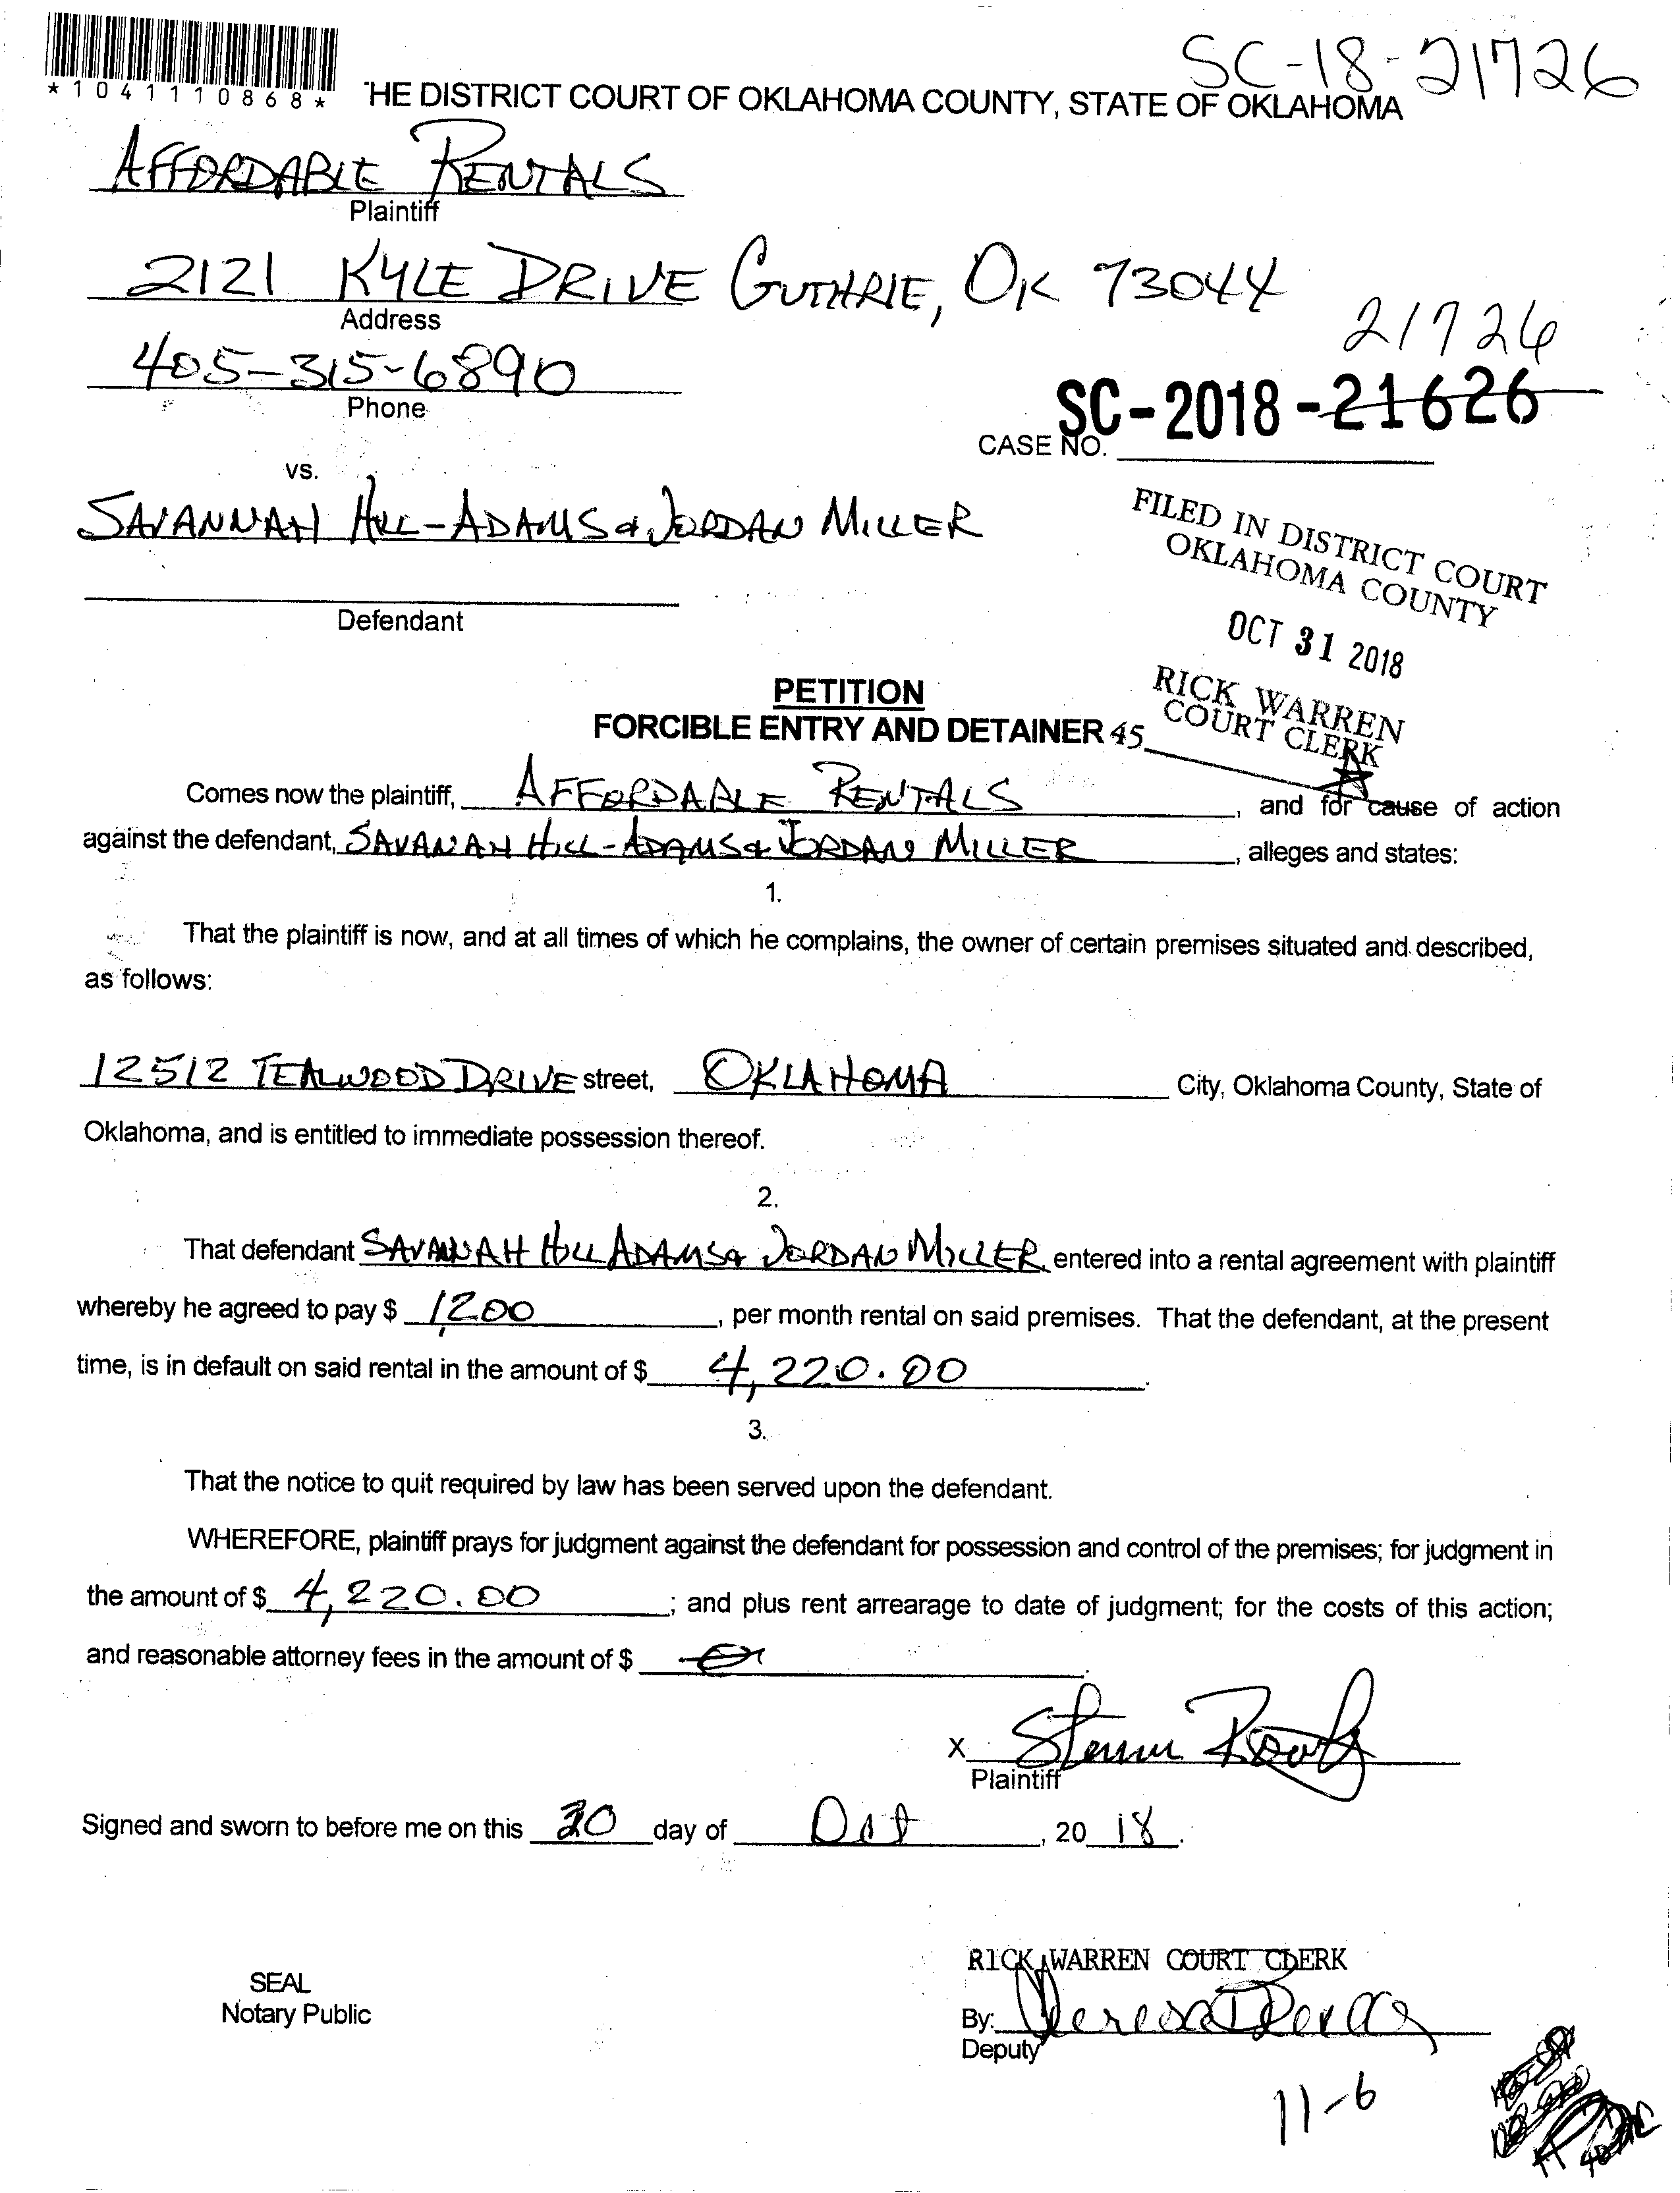 SC-18-21726
*1041110868*
THE DISTRICT COURT OF OKLAHOMA COUNTY, STATE OF OKLAHOMA
AFFORDABLE RENTALS
Plaintiff
2121 KYLE DRIVE GUTHRIE, OK 73044
Address
21726
405-315-6890
Phone
SC-2018-21626
CASE NO.
vs.
SAVANNAH HILL-ADAMS & JORDAN MILLER
Defendant
FILED IN DISTRICT COURT
OKLAHOMA COUNTY
OCT 31 2018
RICK WARREN
COURT CLERK
45
PETITION
FORCIBLE ENTRY AND DETAINER
Comes now the plaintiff, AFFORDABLE RENTALS, and for cause of action
against the defendant, SAVANAH HILL-ADAMS & JORDAN MILLER, alleges and states:
1.
That the plaintiff is now, and at all times of which he complains, the owner of certain premises situated and described,
as follows:
12512 TEALWOOD DRIVE street, OKLAHOMA City, Oklahoma County, State of
Oklahoma, and is entitled to immediate possession thereof.
2.
That defendant SAVANNAH HILL ADAMS & JORDAN MILLER entered into a rental agreement with plaintiff
whereby he agreed to pay $ 1200, per month rental on said premises. That the defendant, at the present
time, is in default on said rental in the amount of $ 4,220.00.
3.
That the notice to quit required by law has been served upon the defendant.
WHEREFORE, plaintiff prays for judgment against the defendant for possession and control of the premises; for judgment in
the amount of $ 4,220.00; and plus rent arrearage to date of judgment; for the costs of this action;
and reasonable attorney fees in the amount of $
X
Plaintiff
Signed and sworn to before me on this 30 day of Oct, 2018.
RICK WARREN COURT CLERK
SEAL
Notary Public
By:
Deputy
11-6